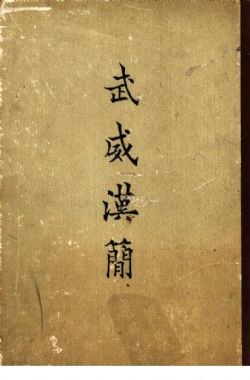 武威漢簡